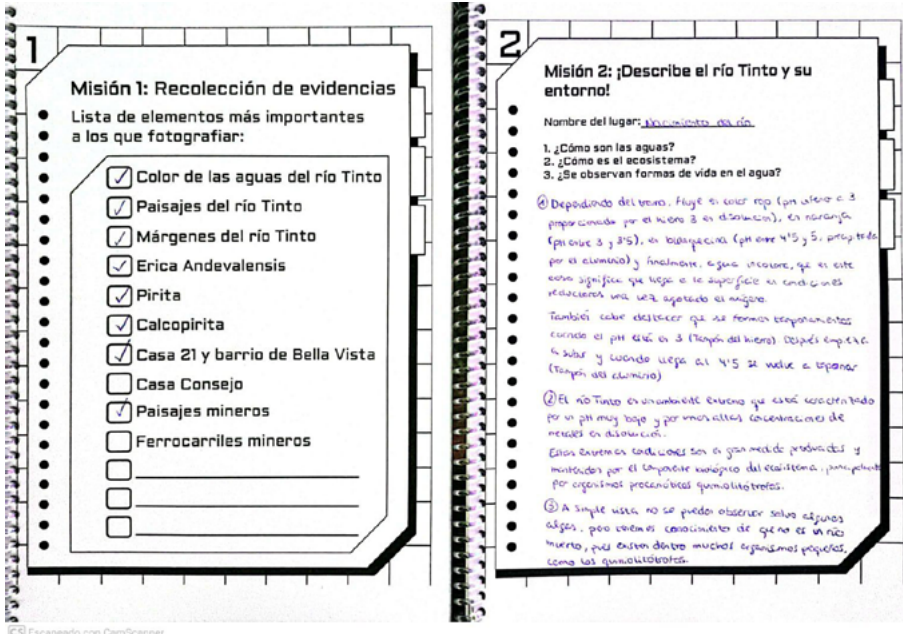 1
Misión 1: Recolección de evidencias
Lista de elementos más importantes
a los que fotografiar:
Color de las aguas del río Tinto
Paisajes del río Tinto
Márgenes del río Tinto
Erica Andevalensis
Pirita
Calcopirita
Casa 21 y barrio de Bella Vista
Casa Consejo
Paisajes mineros
Ferrocarriles mineros
2
Misión 2: ¡Describe el río Tinto y su
entorno!
Nombre del lugar: Nacimiento del río
1. ¿Cómo son las aguas?
2. ¿Cómo es el ecosistema?
3. ¿Se observan formas de vida en el agua?
① Dependiendo del tramo, fluye en color rojo (pH inferior a 3
proporcionado por el hierro 3 en disolución), en naranja
(pH entre 3 y 3'5), en blanquecina (pH entre 4'5 y 5, precipitada
por el aluminio) y finalmente, agua incolora, que en este
caso significa que llega a la superficie en condiciones
reductoras una vez agotado el oxígeno.
También cabe destacar que se forman taponamientos
cuando el pH está en 3 (Tampón del hierro). Después empieza
a subir y cuando llega al 4'5 se vuelve a taponar
(Tampón del aluminio)
② El río Tinto es un ambiente extremo que está caracterizado
por un pH muy bajo y por unas altas concentraciones de
metales en disolución.
Estas extremas condiciones son en gran medida producidas y
mantenidas por el componente biológico del ecosistema,
por organismos procarióticos quimiolitótrofos.
③ A simple vista no se puede observar salvo algunas
algas, pero tenemos conocimiento de que no es un río
muerto, pues existen dentro muchos organismos pequeños,
como los quimiolitótrofos.
CS Escaneado con CamScanner